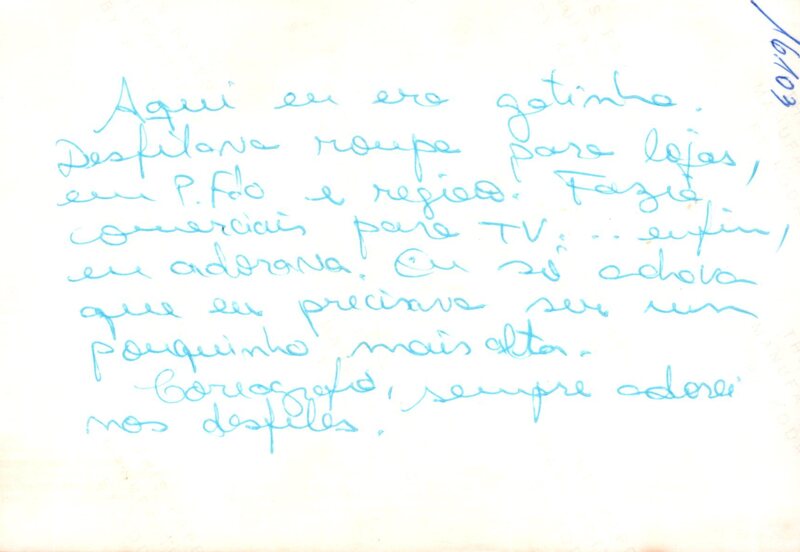 16.103
Aqui eu era gatinha.
Desfilava roupa para lojas,
em P. Fdo e região. Fazia
comerciais para TV... enfim,
eu adorava. Eu só achava
que eu precisava ser um
pouquinho mais alta.
Coreografia, sempre adorei
nos desfiles.